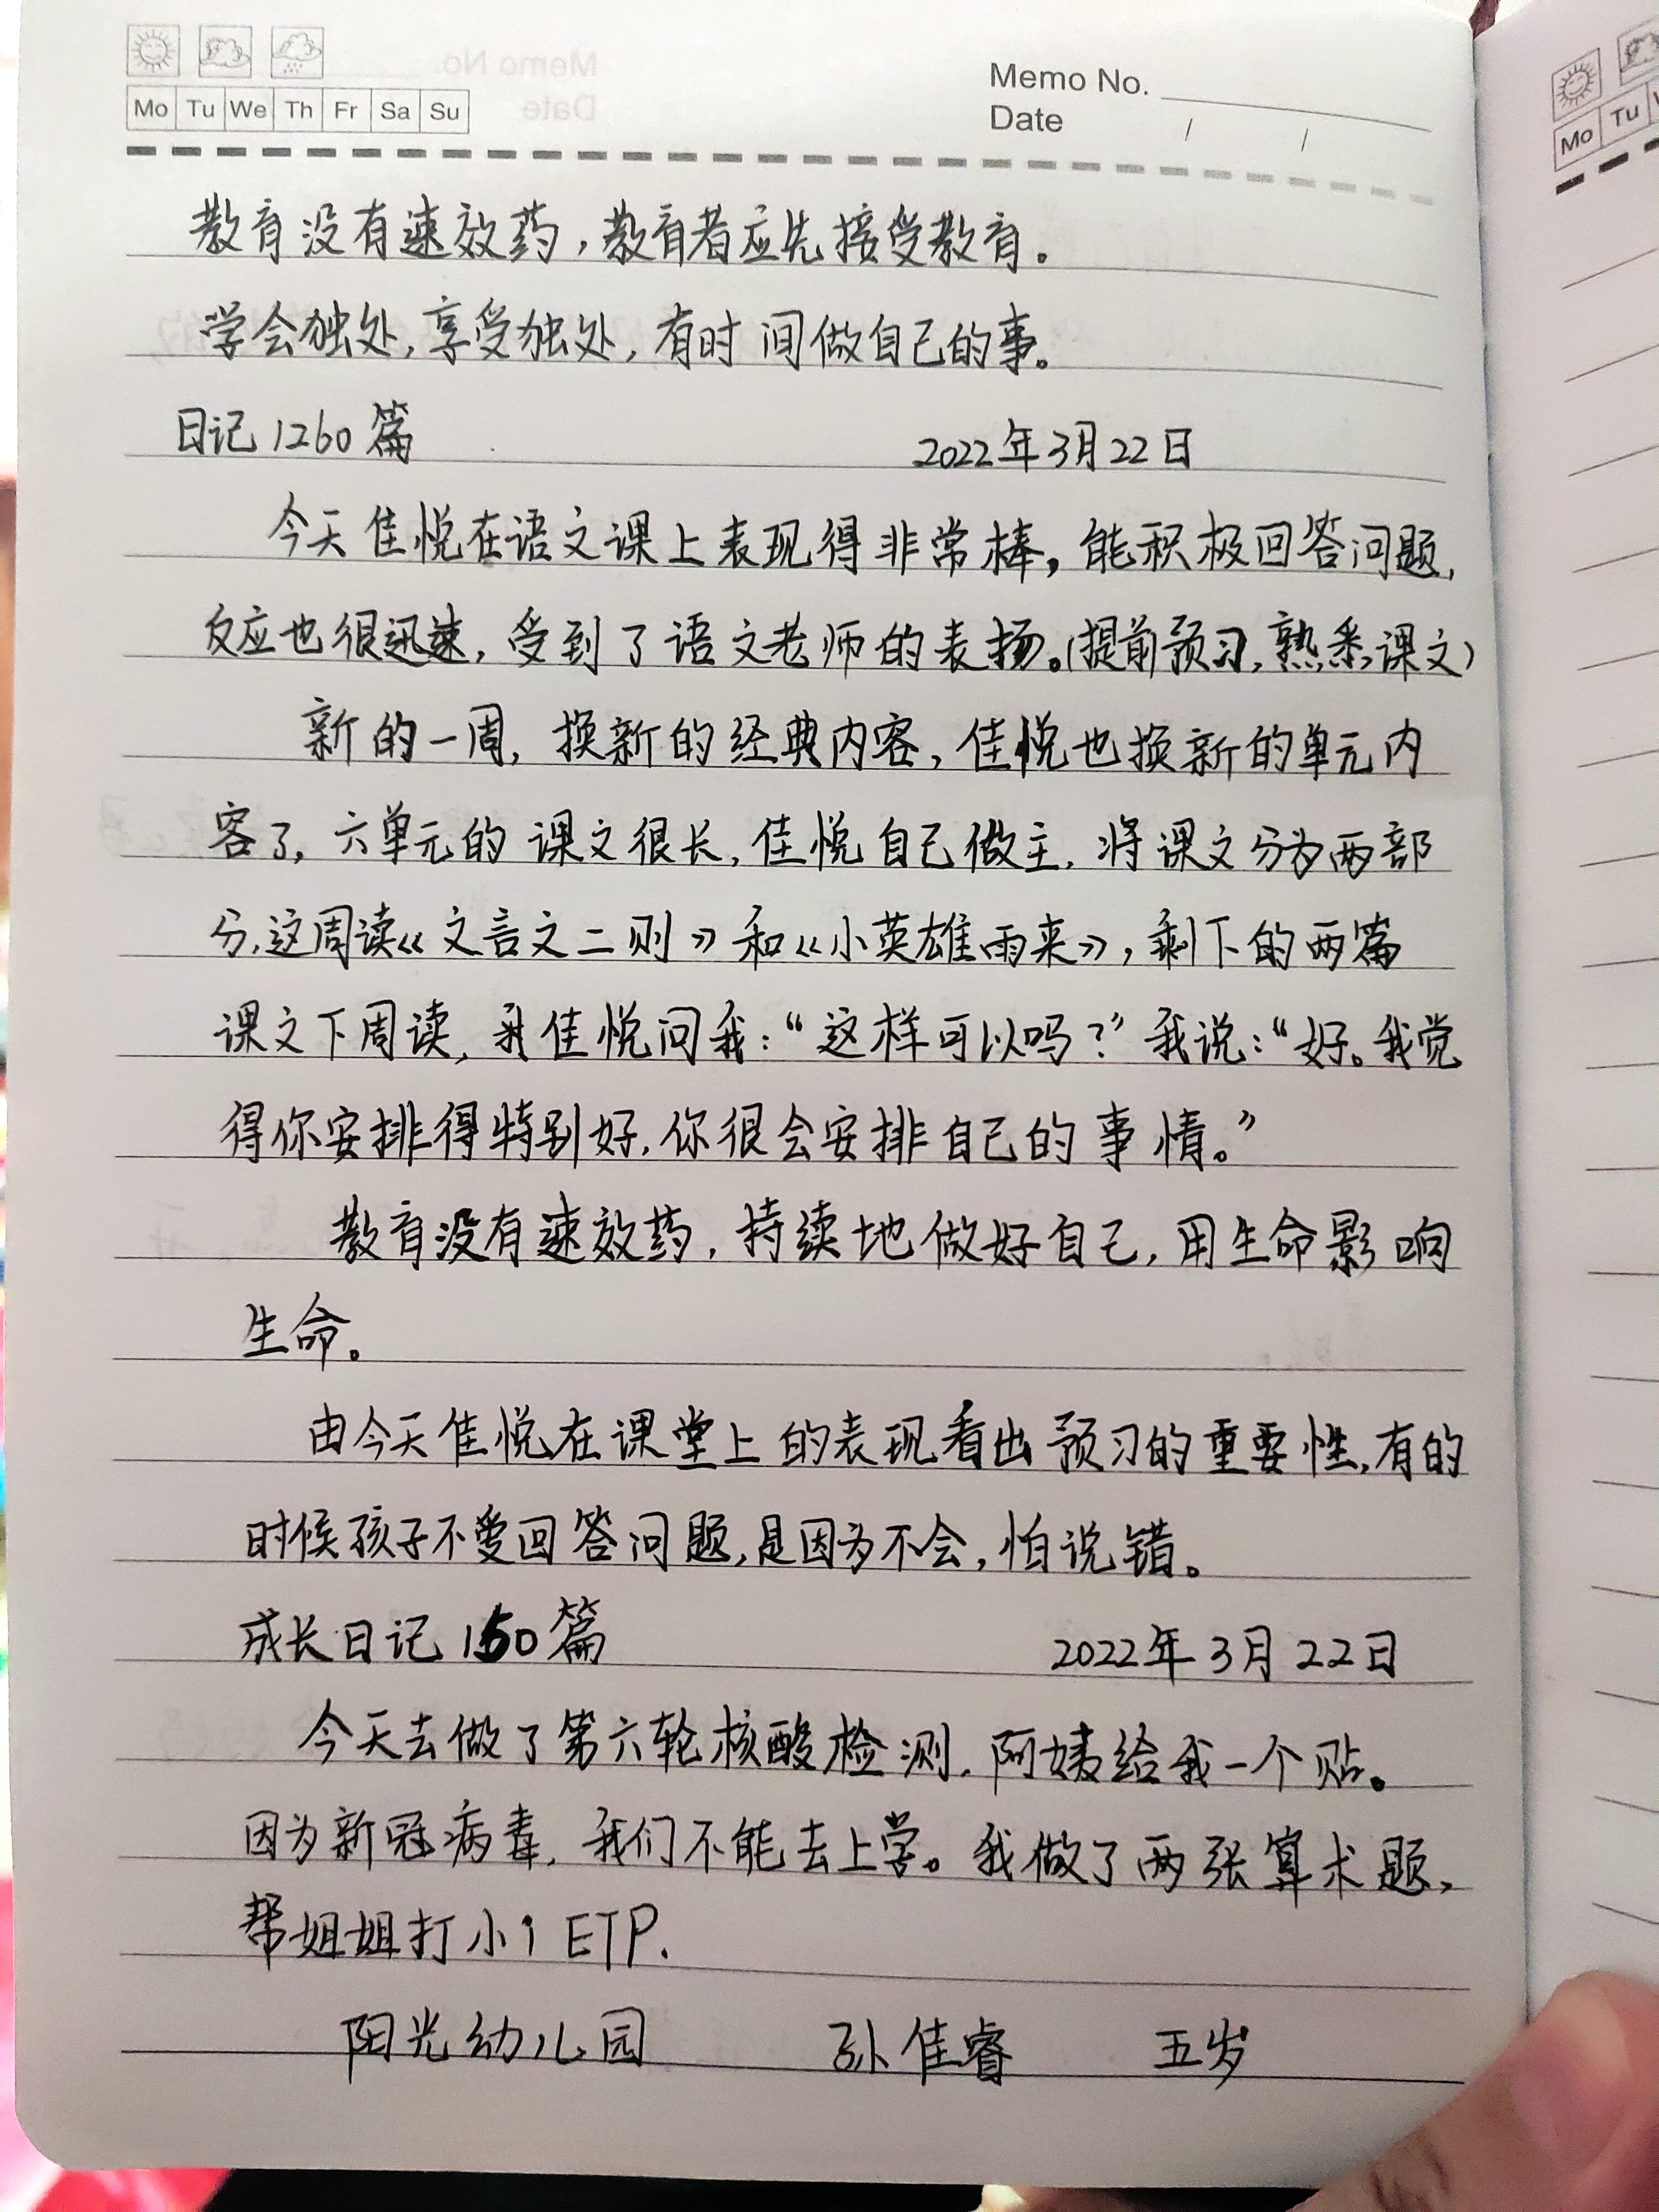 Mo Tu We Th Fr Sa Su
Memo No.
Date / /
教育没有速效药,教育者应先接受教育。
学会独处,享受独处,有时间做自己的事。
日记1260篇 2022年3月22日
今天佳悦在语文课上表现得非常棒,能积极回答问题,
反应也很迅速,受到了语文老师的表扬。(提前预习,熟悉课文)
新的一周,换新的经典内容,佳悦也换新的单元内
容了,六单元的课文很长,佳悦自己做主,将课文分为两部
分,这周读《文言文二则》和《小英雄雨来》,剩下的两篇
课文下周读,佳悦问我:“这样可以吗?”我说:“好。我觉
得你安排得特别好,你很会安排自己的事情。”
教育没有速效药,持续地做好自己,用生命影响
生命。
由今天佳悦在课堂上的表现看出预习的重要性,有的
时候孩子不爱回答问题,是因为不会,怕说错。
成长日记150篇 2022年3月22日
今天去做了第六轮核酸检测,阿姨给我一个贴。
因为新冠病毒,我们不能去上学。我做了两张算术题,
帮姐姐打小1 ETP.
阳光幼儿园 孙佳睿 五岁
Mo Tu